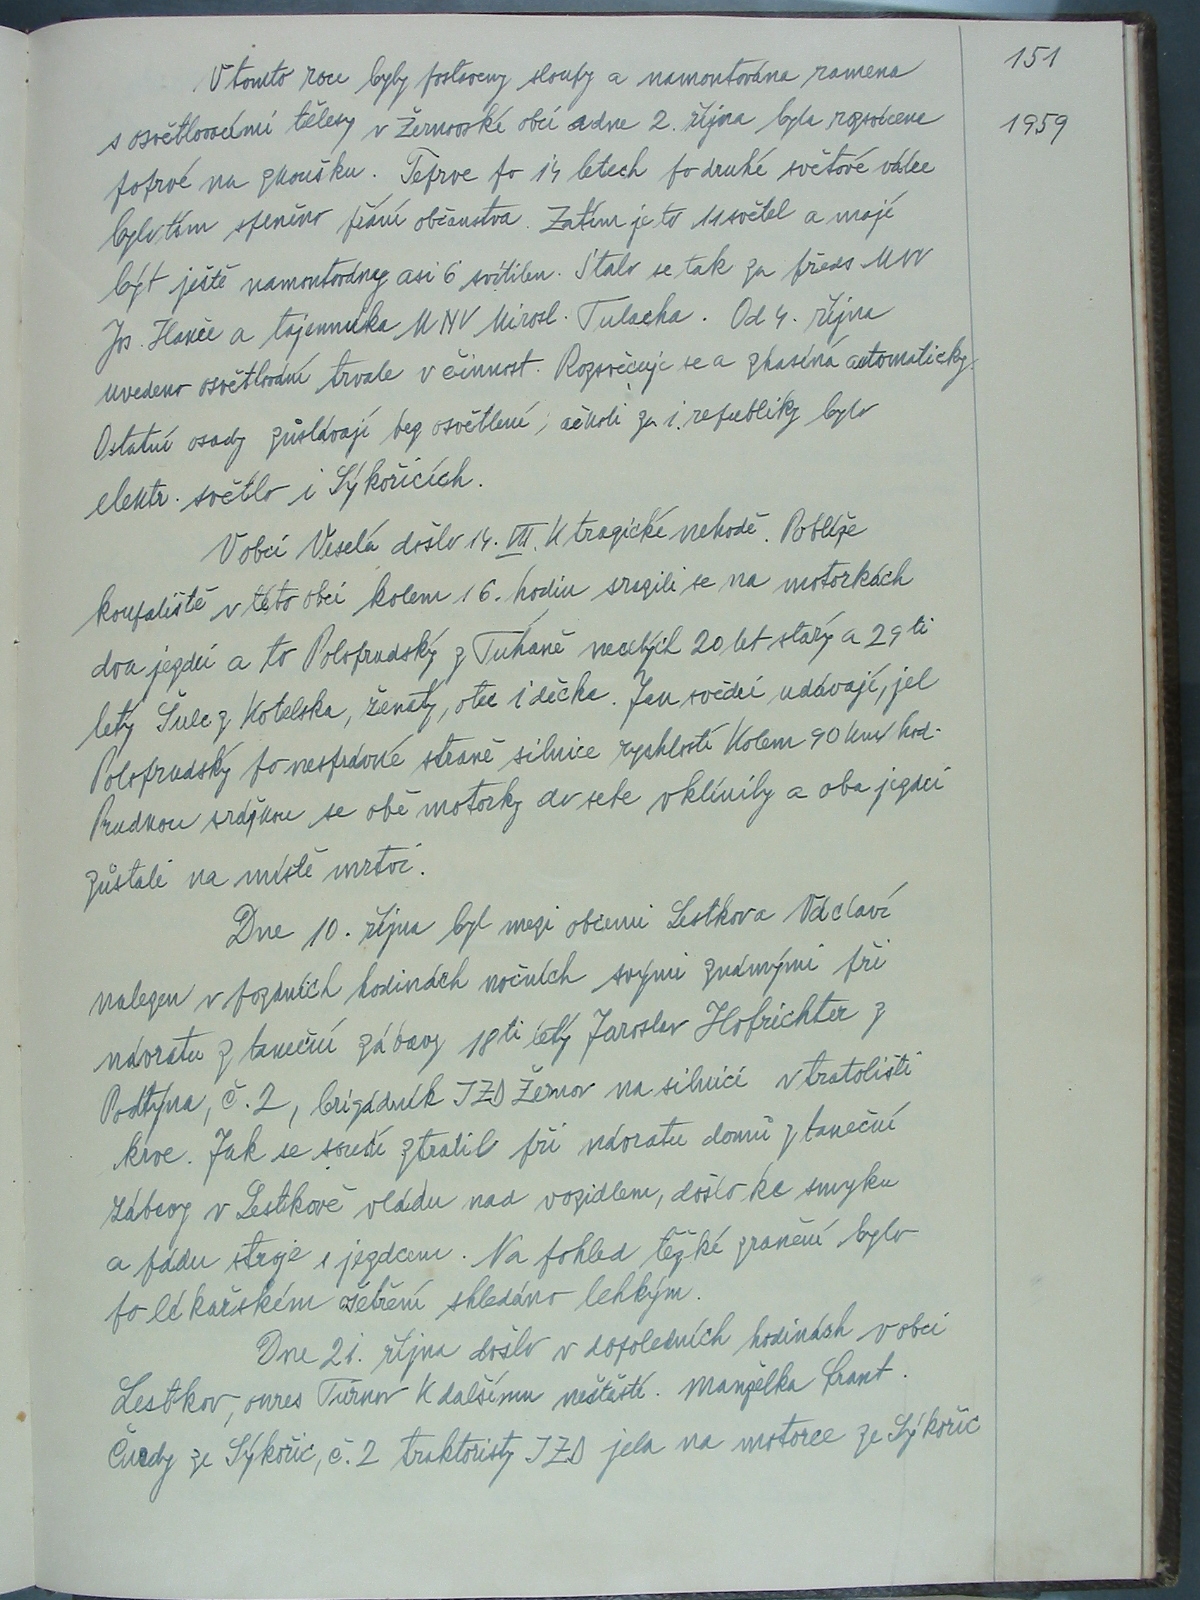 151
1959
V tomto roce byly postaveny sloupy a namontována ramena
s osvětlovacími tělesy v Žernovské obci a dne 2. října byla rozsvícena
poprvé na zkoušku. Teprve po 14 letech po druhé světové válce
bylo tím splněno přání občanstva. Zatím je to 11 světel a mají
být ještě namontovány asi 6 svítilen. Stalo se tak za předs MNV
Jos. Hanče a tajemníka MNV Mirosl. Tulacha. Od 4. října
uvedeno osvětlování trvale v činnost. Rozsvěcuje se a zhasíná automaticky.
Ostatní osady zůstávají bez osvětlení, ačkoli za i. republiky bylo
elektr. světlo i Sýkořicích.
V obci Veselá došlo 14. VII. k tragické nehodě. Poblíže
koupaliště v této obci kolem 16. hodin srazili se na motorkách
dva jezdci a to Poloprudský z Tuháně necelých 20 let starý a 29 ti
letý Šulc z Kotelska, ženatý, otec 1 děcka. Jan svědci udávají, jel
Poloprudský po nesprávné straně silnice rychlostí kolem 90 km/hod.
Prudkou srážkou se obě motorky do sebe vklínily a oba jezdci
zůstali na místě mrtvi.
Dne 10. října byl mezi obcemi Lestkova Václaví
nalezen v pozdních hodinách nočních svými známými při
návratu z taneční zábavy 18 ti letý Jaroslav Hofrichter z
Podtýna, č. 2, brigádník JZD Žernov na silnici v tratolišti
krve. Jak se soudí ztratil při návratu domů z taneční
zábavy v Lestkově vládu nad vozidlem, došlo ke smyku
a pádu stroje s jezdcem. Na pohled těžké zranění bylo
po lékařském ošetření shledáno lehkým.
Dne 21. října došlo v dopoledních hodinách v obci
Lestkov, okres Turnov k dalšímu neštěstí. Manželka Frant.
Čudy ze Sýkořic, č. 2 traktoristy JZD jela na motorce ze Sýkořic